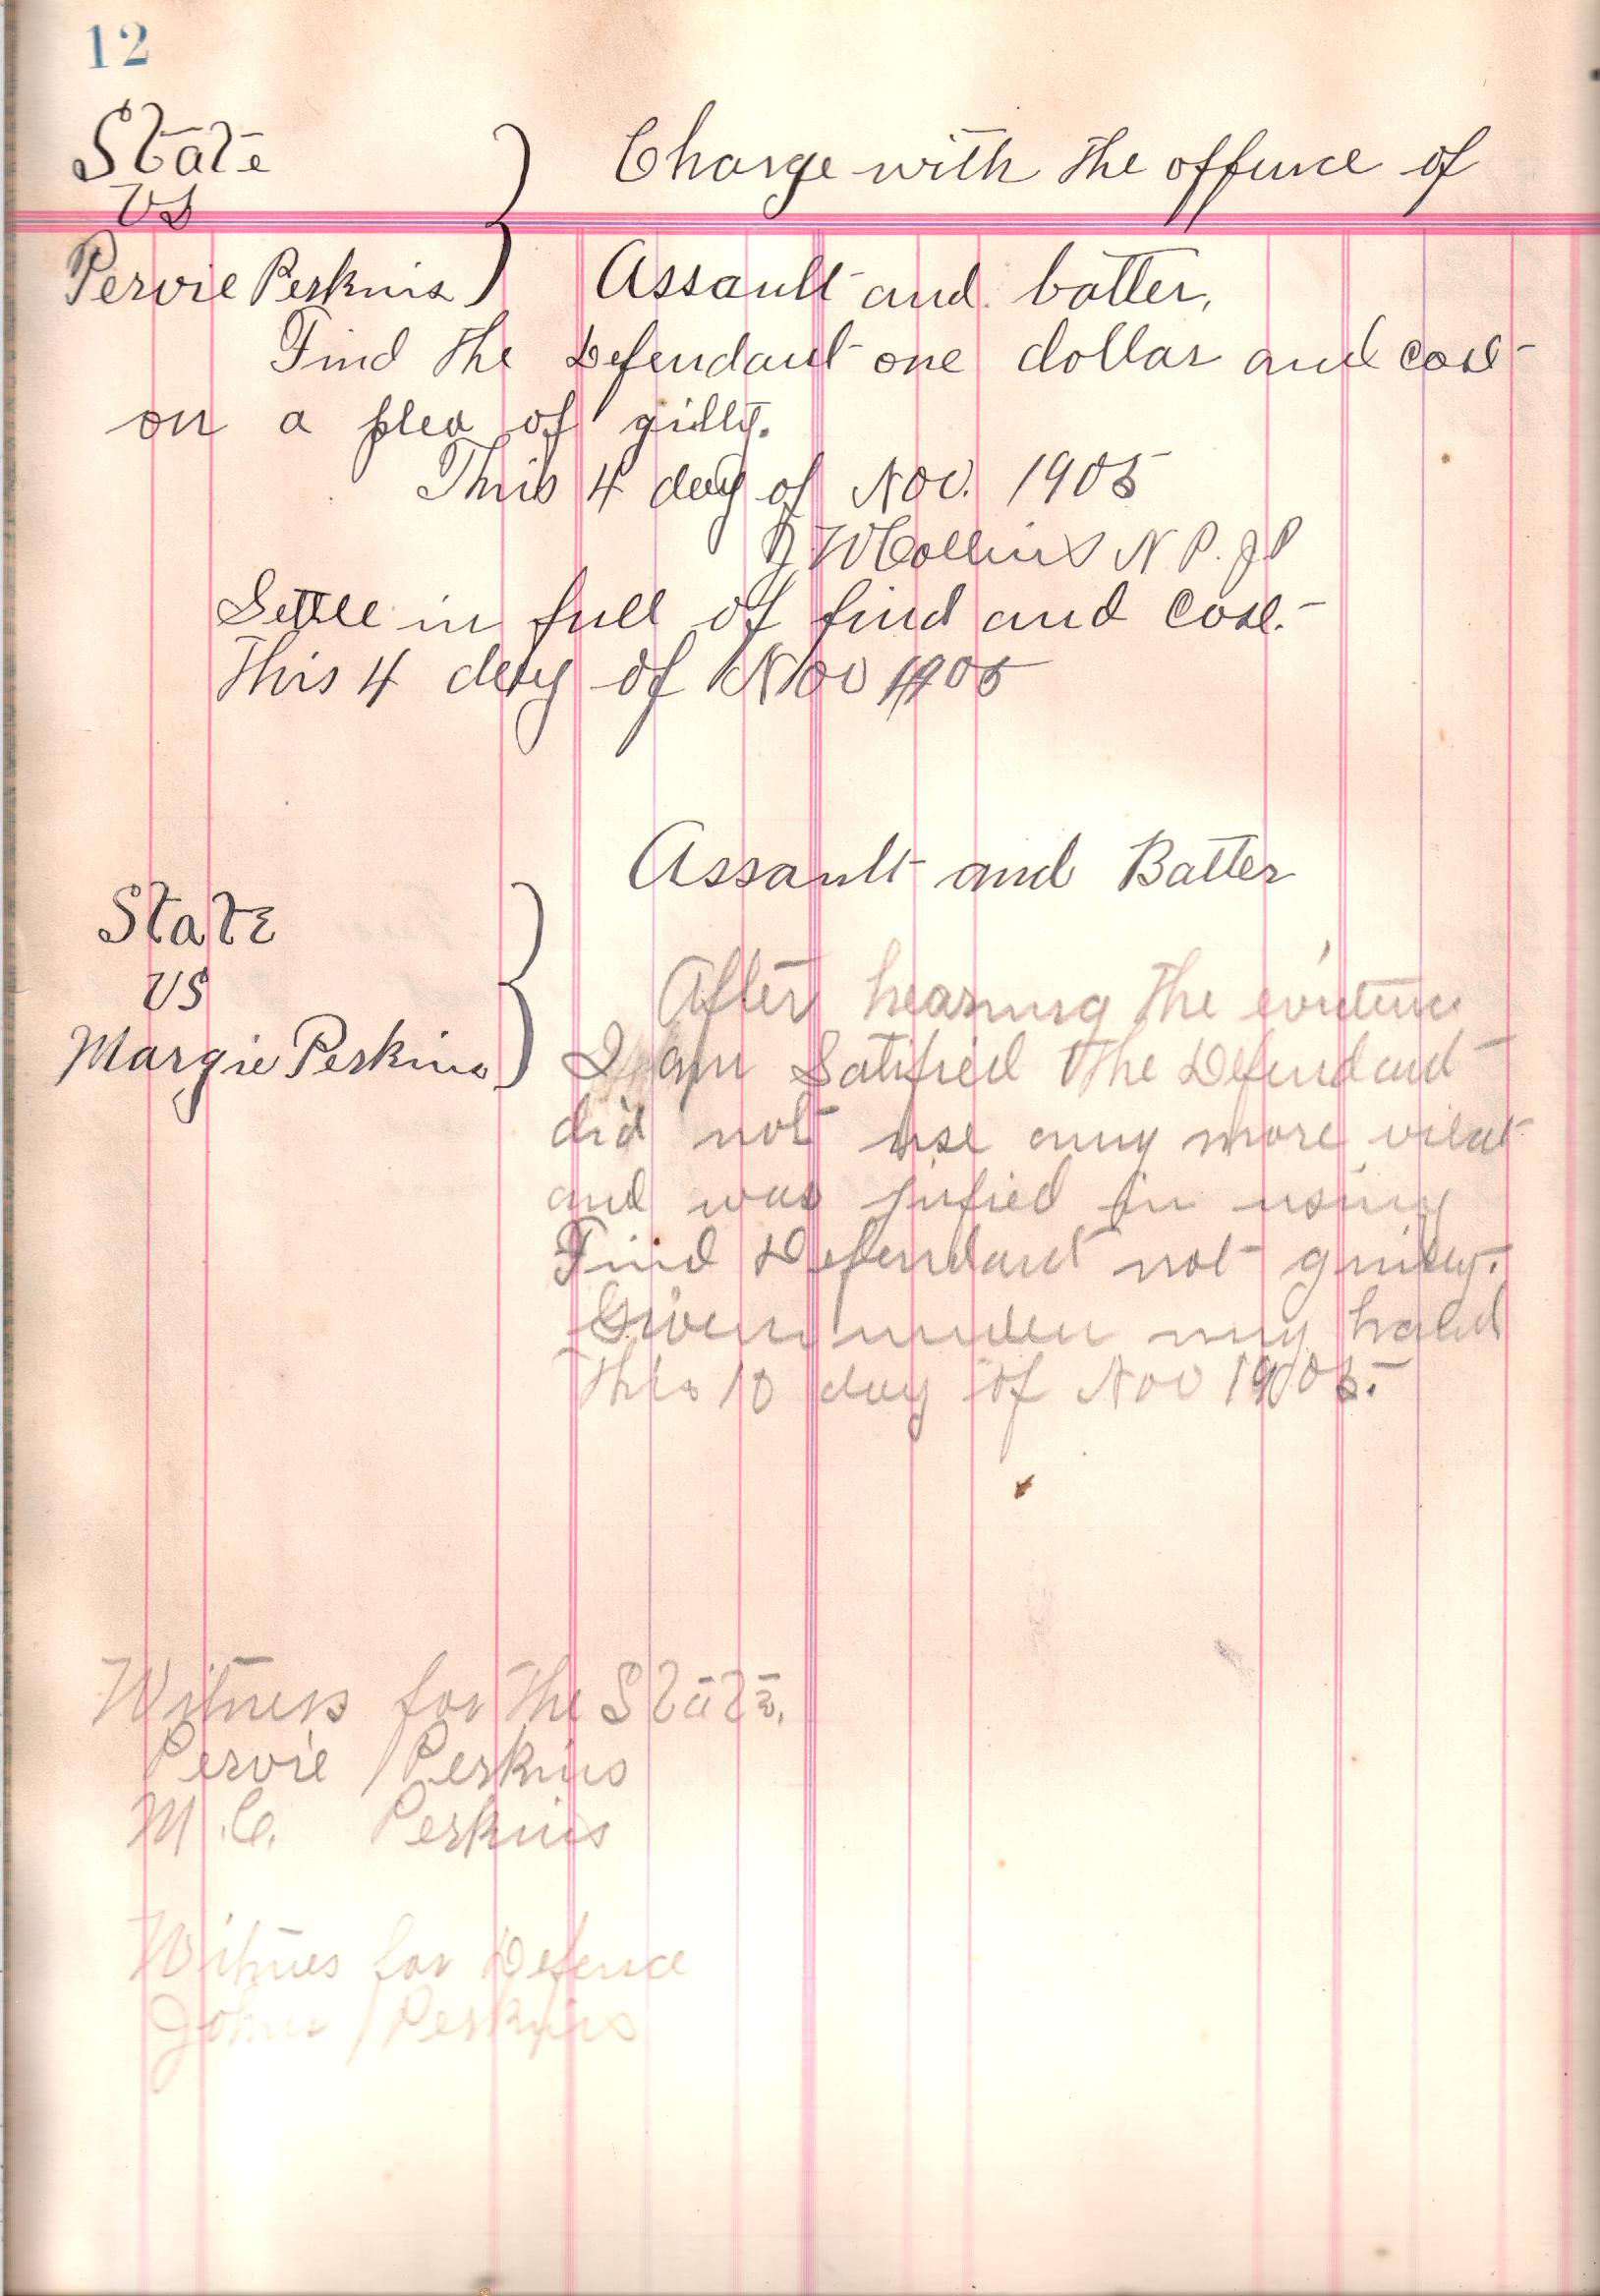 12
State
vs
Pervie Perkins
Charge with the offence of
Assault and batter,
Find the Defendant one dollar and cost
on a plea of gilty.
This 4 day of Nov. 1905
J W Collins N P. J P
Settle in full of find and cost.
This 4 day of Nov 1905
Assault and Batter
State
vs
Margie Perkins
After hearing the
I am Satified the Defendant
did not use any more
and was jufied in using
Find Defendant not
Given under my hand
This 10 day of Nov 1905.
Witness for the State.
Pervie Perkins
M. C. Perkins
Witnes for Defence
John Perkins